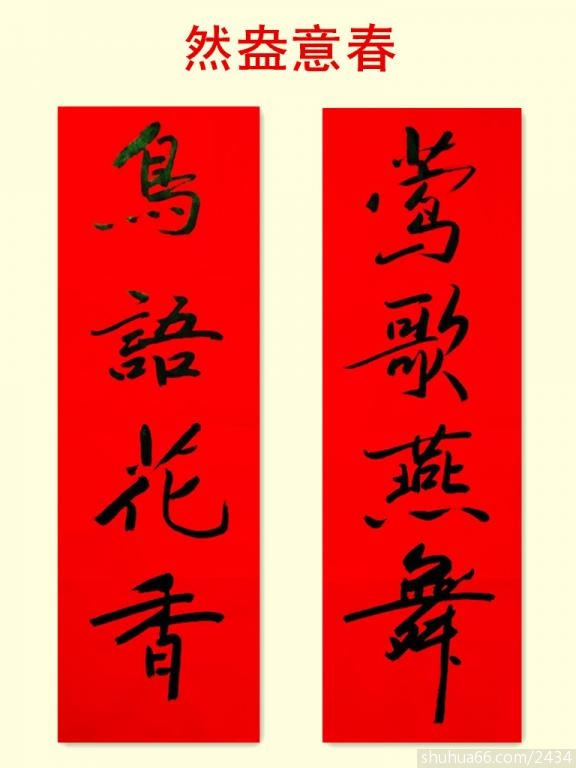 春意盎然
莺歌燕舞
鳥語花香
shuhua66.com/2434